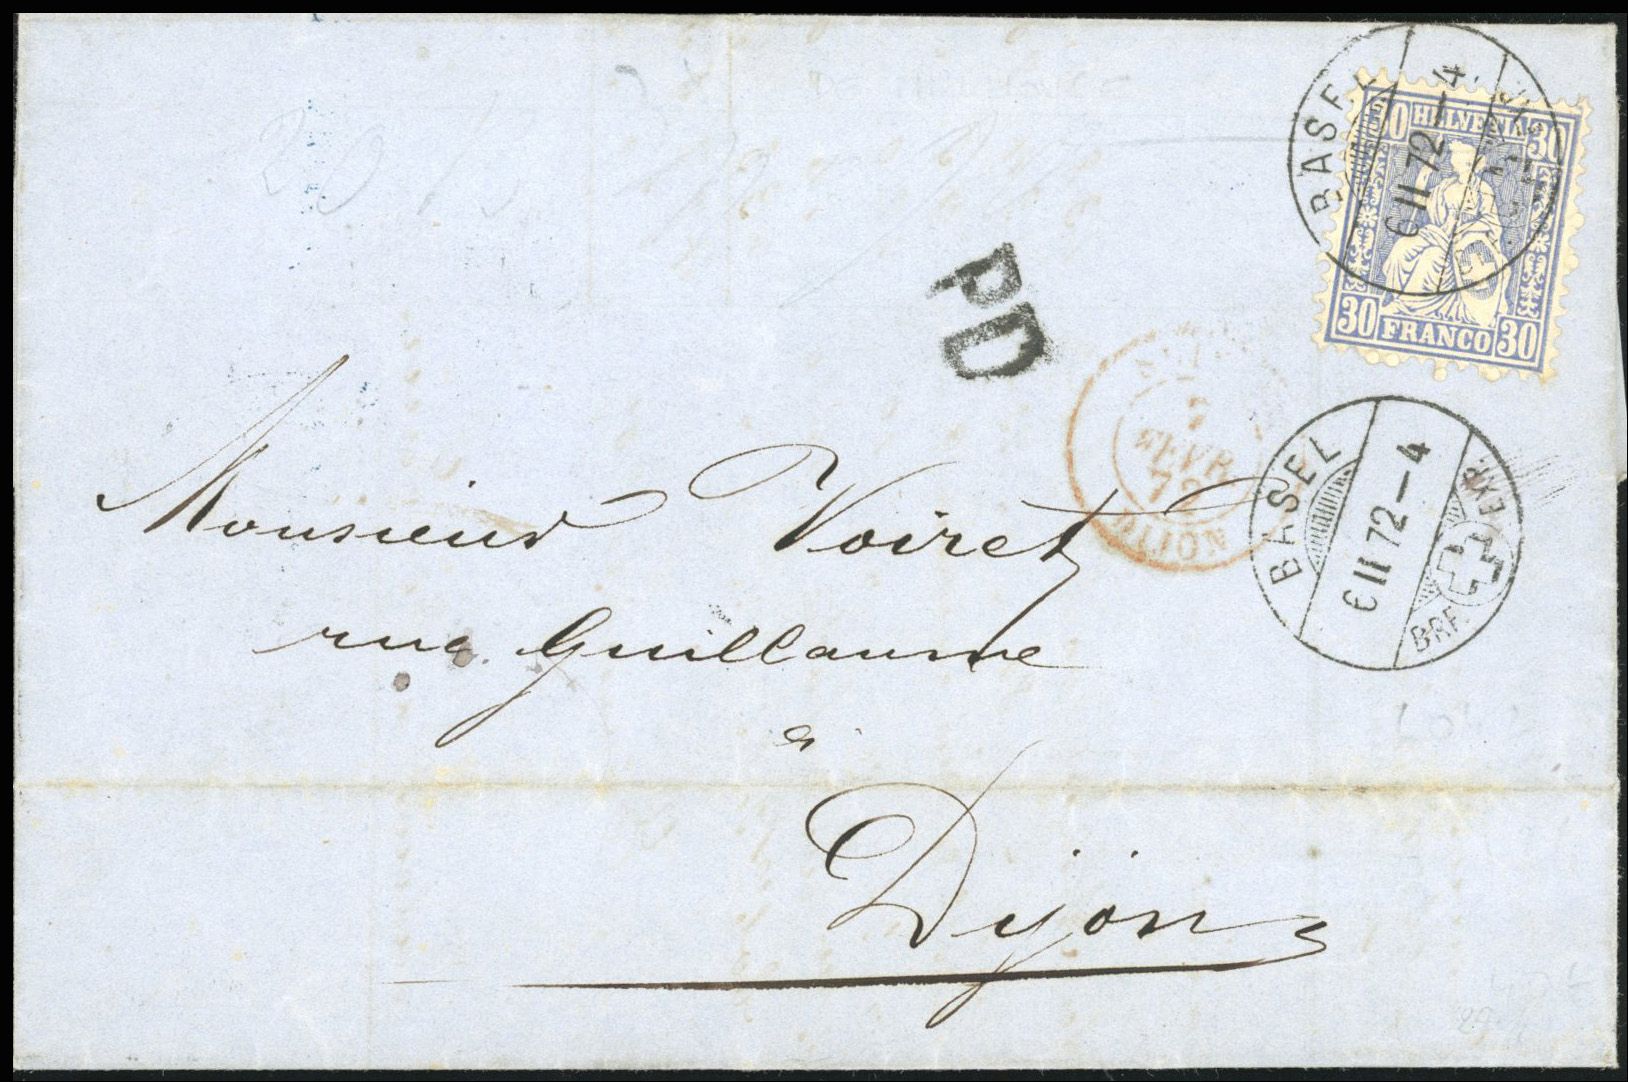 BASEL
6 II 72–4
30 HELVETIA 30
30 FRANCO 30
PD
7
FEVR
72
DIJON
BASEL
6 II 72–4
BRF. EXP.
Monsieur Voiret
rue Guillaume
à
Dijon